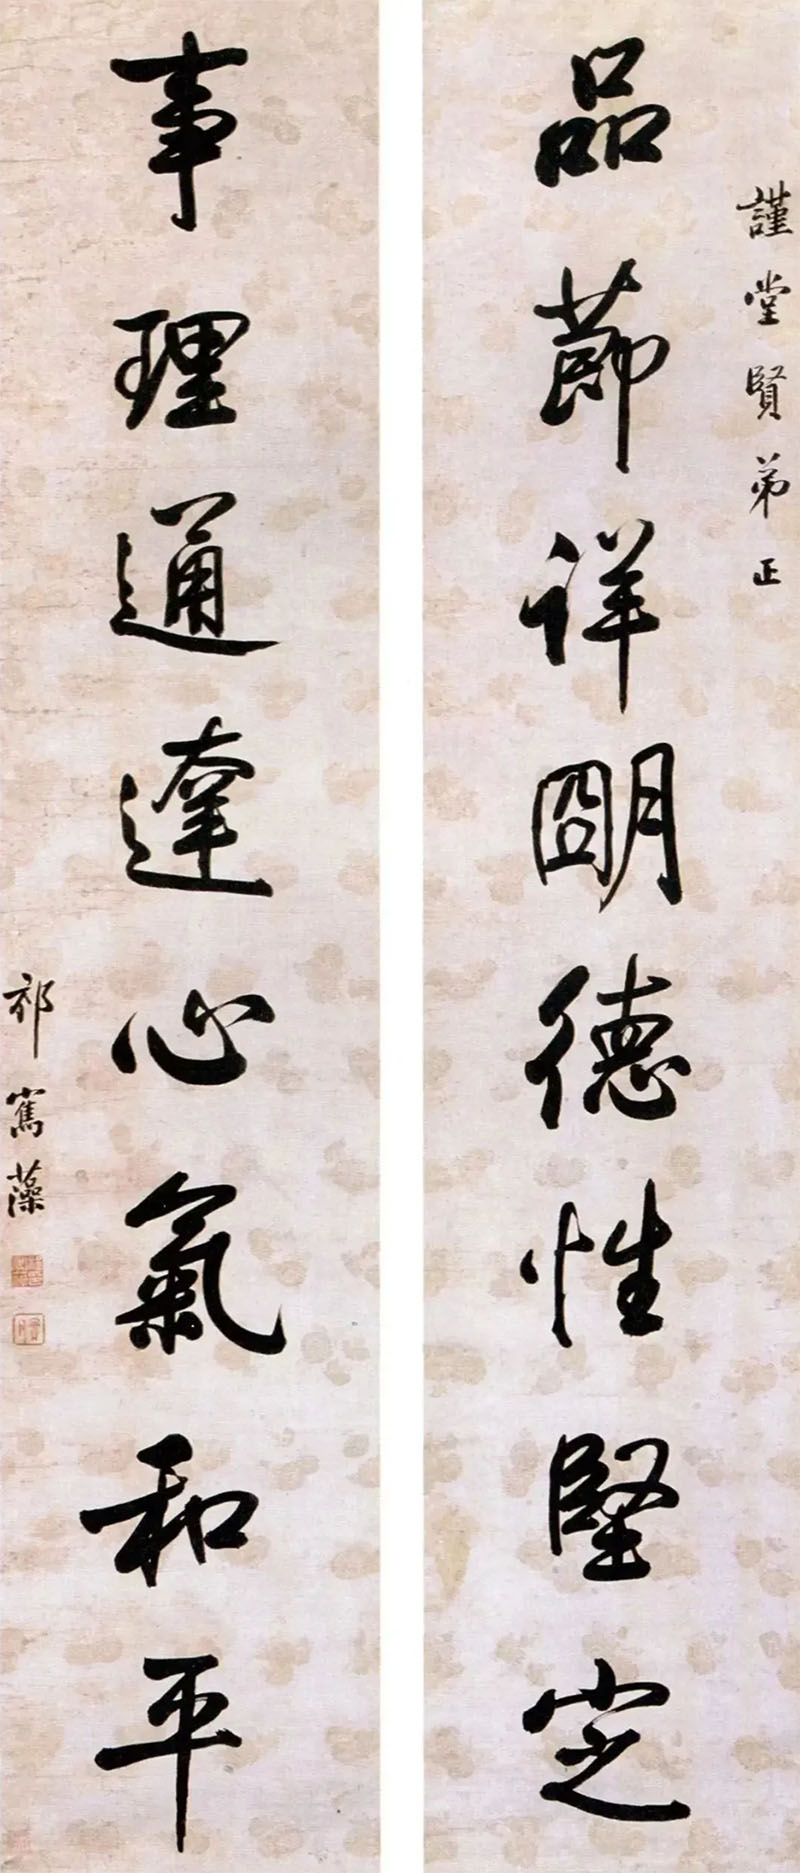 謹堂賢弟正
品節詳明德性堅定
事理通達心氣和平
祁寯藻